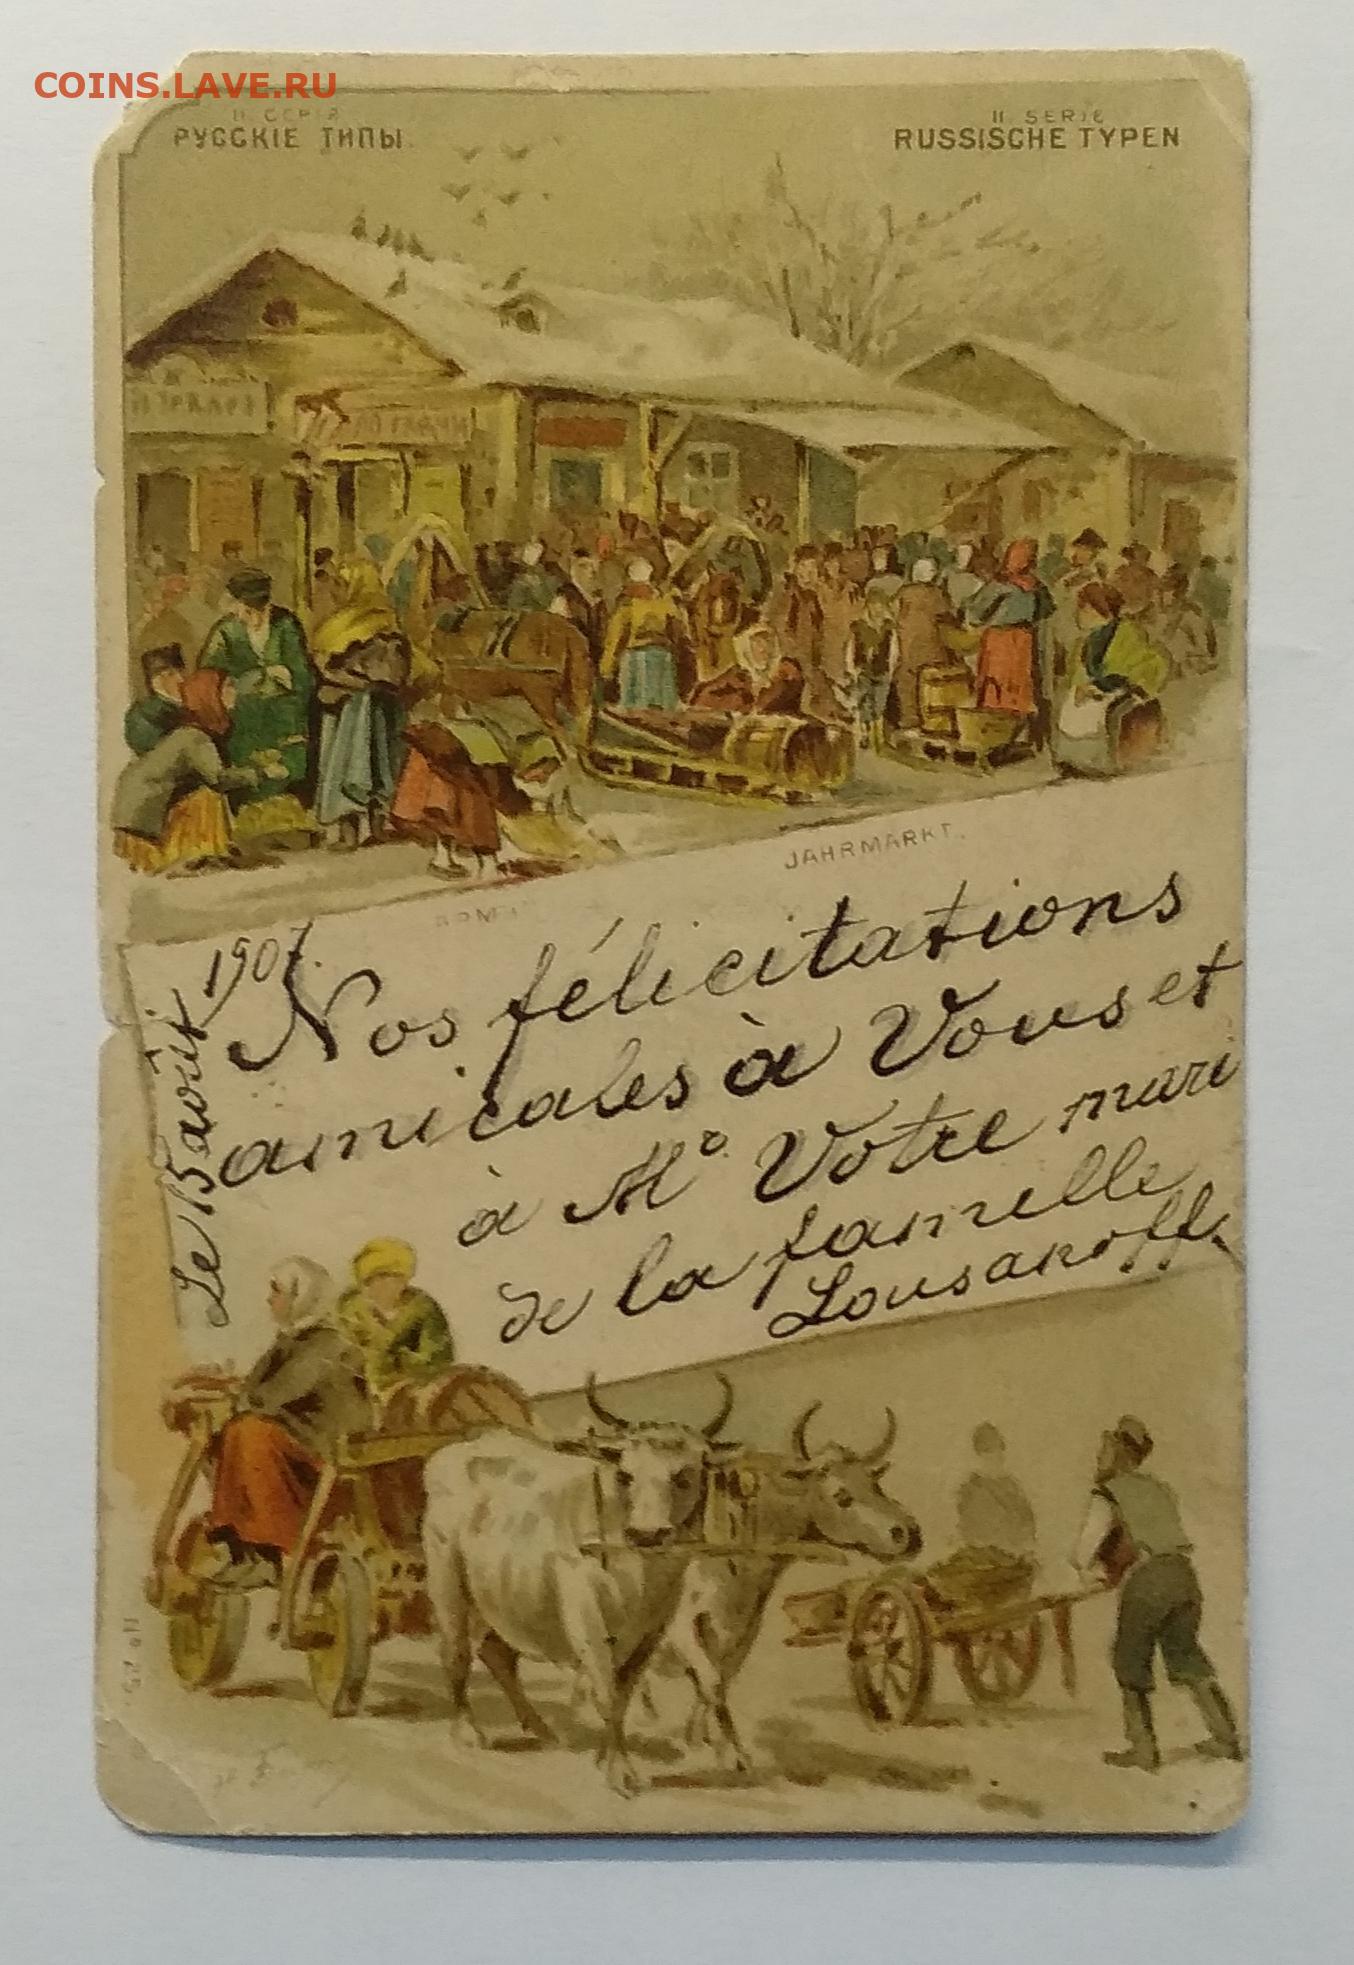 COINS.LAVE.RU
II СЕРІЯ
РУССКІЕ ТИПЫ.
II. SERIE
RUSSISCHE TYPEN
JAHRMARKT.
Le 13 avril 1907.
Nos félicitations
amicales à Vous et
à Mº Votre mari
de la famille
Lousanoff.
Nº 25.